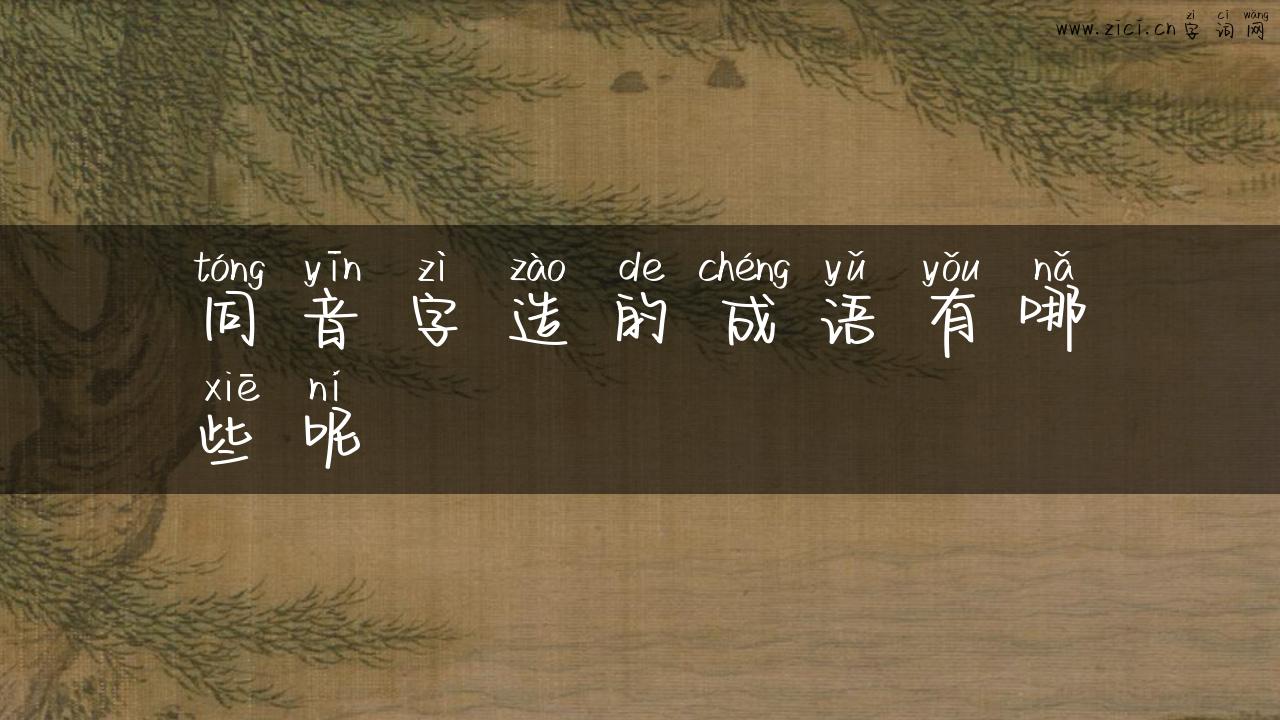 zì cí wǎng
www.zici.cn 字词网
tóng yīn zì zào de chéng yǔ yǒu nǎ
同音字造的成语有哪
xiē ní
些呢